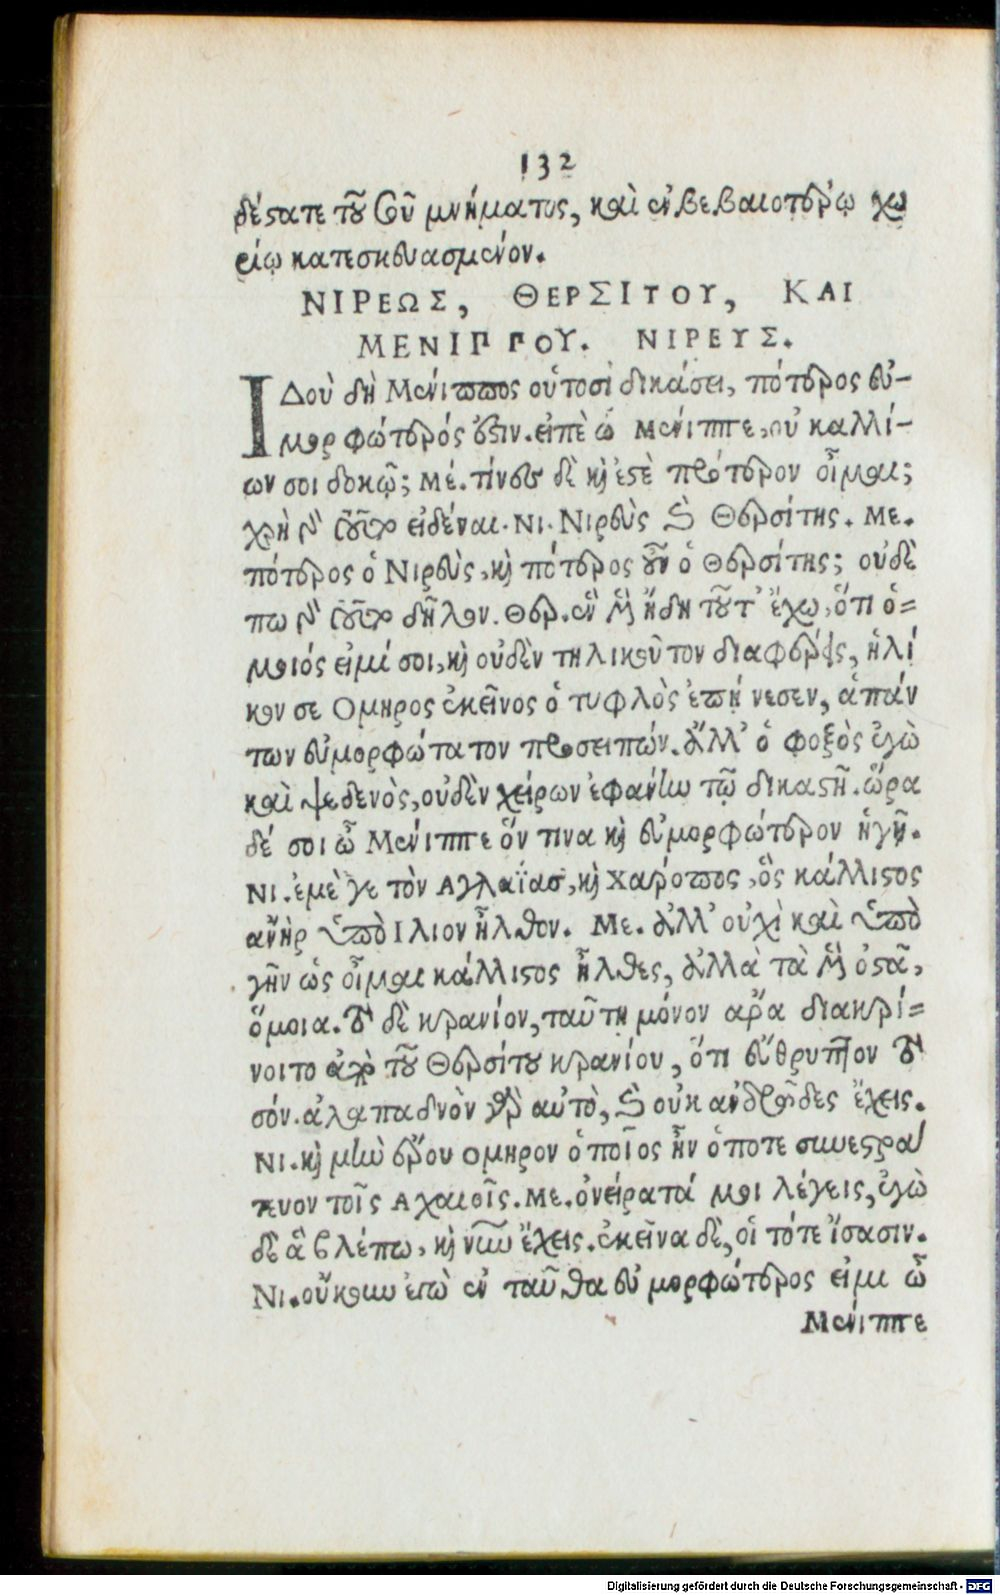 132
δέστατε τοῦ σοῦ μνήματος, καὶ ἐν βεβαιοτέρῳ χω
ρίῳ κατεσκευασμένον.
ΝΙΡΕΩΣ, ΘΕΡΣΙΤΟΥ, ΚΑΙ
ΜΕΝΙΠΠΟΥ. ΝΙΡΕΥΣ.
ΙΔοὺ δὴ Μένιππος οὑτοσὶ δικάσει, πότερος εὐ-
μορφώτερός ἐστιν. εἰπὲ ὦ Μένιππε, οὐ καλλί-
ων σοι δοκῶ; Με. τίνες δὲ καὶ ἐστὲ πρότερον οἶμαι;
χρὴ γὰρ τοῦτο εἰδέναι. Νι. Νιρεὺς καὶ Θερσίτης. Με.
πότερος ὁ Νιρεὺς, καὶ πότερος οὖν ὁ Θερσίτης; οὐδέ
πω γὰρ τοῦτο δῆλον. Θερ. ἓν μὲν ἤδη τοῦτ' ἔχω, ὅτι ὅ=
μοιός εἰμί σοι, καὶ οὐδὲν τηλικοῦτον διαφέρεις, ἡλί
κον σε Ομηρος ἐκεῖνος ὁ τυφλὸς ἐπῄνεσεν, ἁπάν
των εὐμορφώτατον προσειπών. ἀλλ' ὁ φοξὸς ἐγὼ
καὶ ψεδενὸς, οὐδὲν χείρων ἐφάνην τῷ δικαστῇ. ὥρα
δέ σοι ὦ Μένιππε ὅν τινα καὶ εὐμορφώτερον ἡγῇ.
Νι. ἐμέ γε τὸν Αγλαΐας, καὶ Χάροπος, ὃς κάλλιστος
ἀνὴρ ὑπὸ Ιλιον ἦλθον. Με. ἀλλ' οὐχὶ καὶ ὑπὸ
γῆν ὡς οἶμαι κάλλιστος ἦλθες, ἀλλὰ τὰ μὲν ὀστᾶ,
ὅμοια. τὸ δὲ κρανίον, ταύτῃ μόνον ἄρα διακρί=
νοιτο ἀπὸ τοῦ Θερσίτου κρανίου, ὅτι εὔθρυπτον τὸ
σόν. ἀλαπαδνὸν γὰρ αὐτὸ, καὶ οὐκ ἀνδρῶδες ἔχεις.
Νι. καὶ μὴν ἐροῦ Ομηρον ὁποῖος ἦν ὁπότε συνεστρά
τευον τοῖς Αχαιοῖς. Με. ὀνείρατά μοι λέγεις, ἐγὼ
δὲ ἃ βλέπω, καὶ νῦν ἔχεις. ἐκεῖνα δὲ, οἱ τότε ἴσασιν.
Νι. οὔκουν ἐγὼ ἐνταῦθα εὐμορφώτερος εἰμι ὦ
Μένιππε
Digitalisierung gefördert durch die Deutsche Forschungsgemeinschaft - DFG